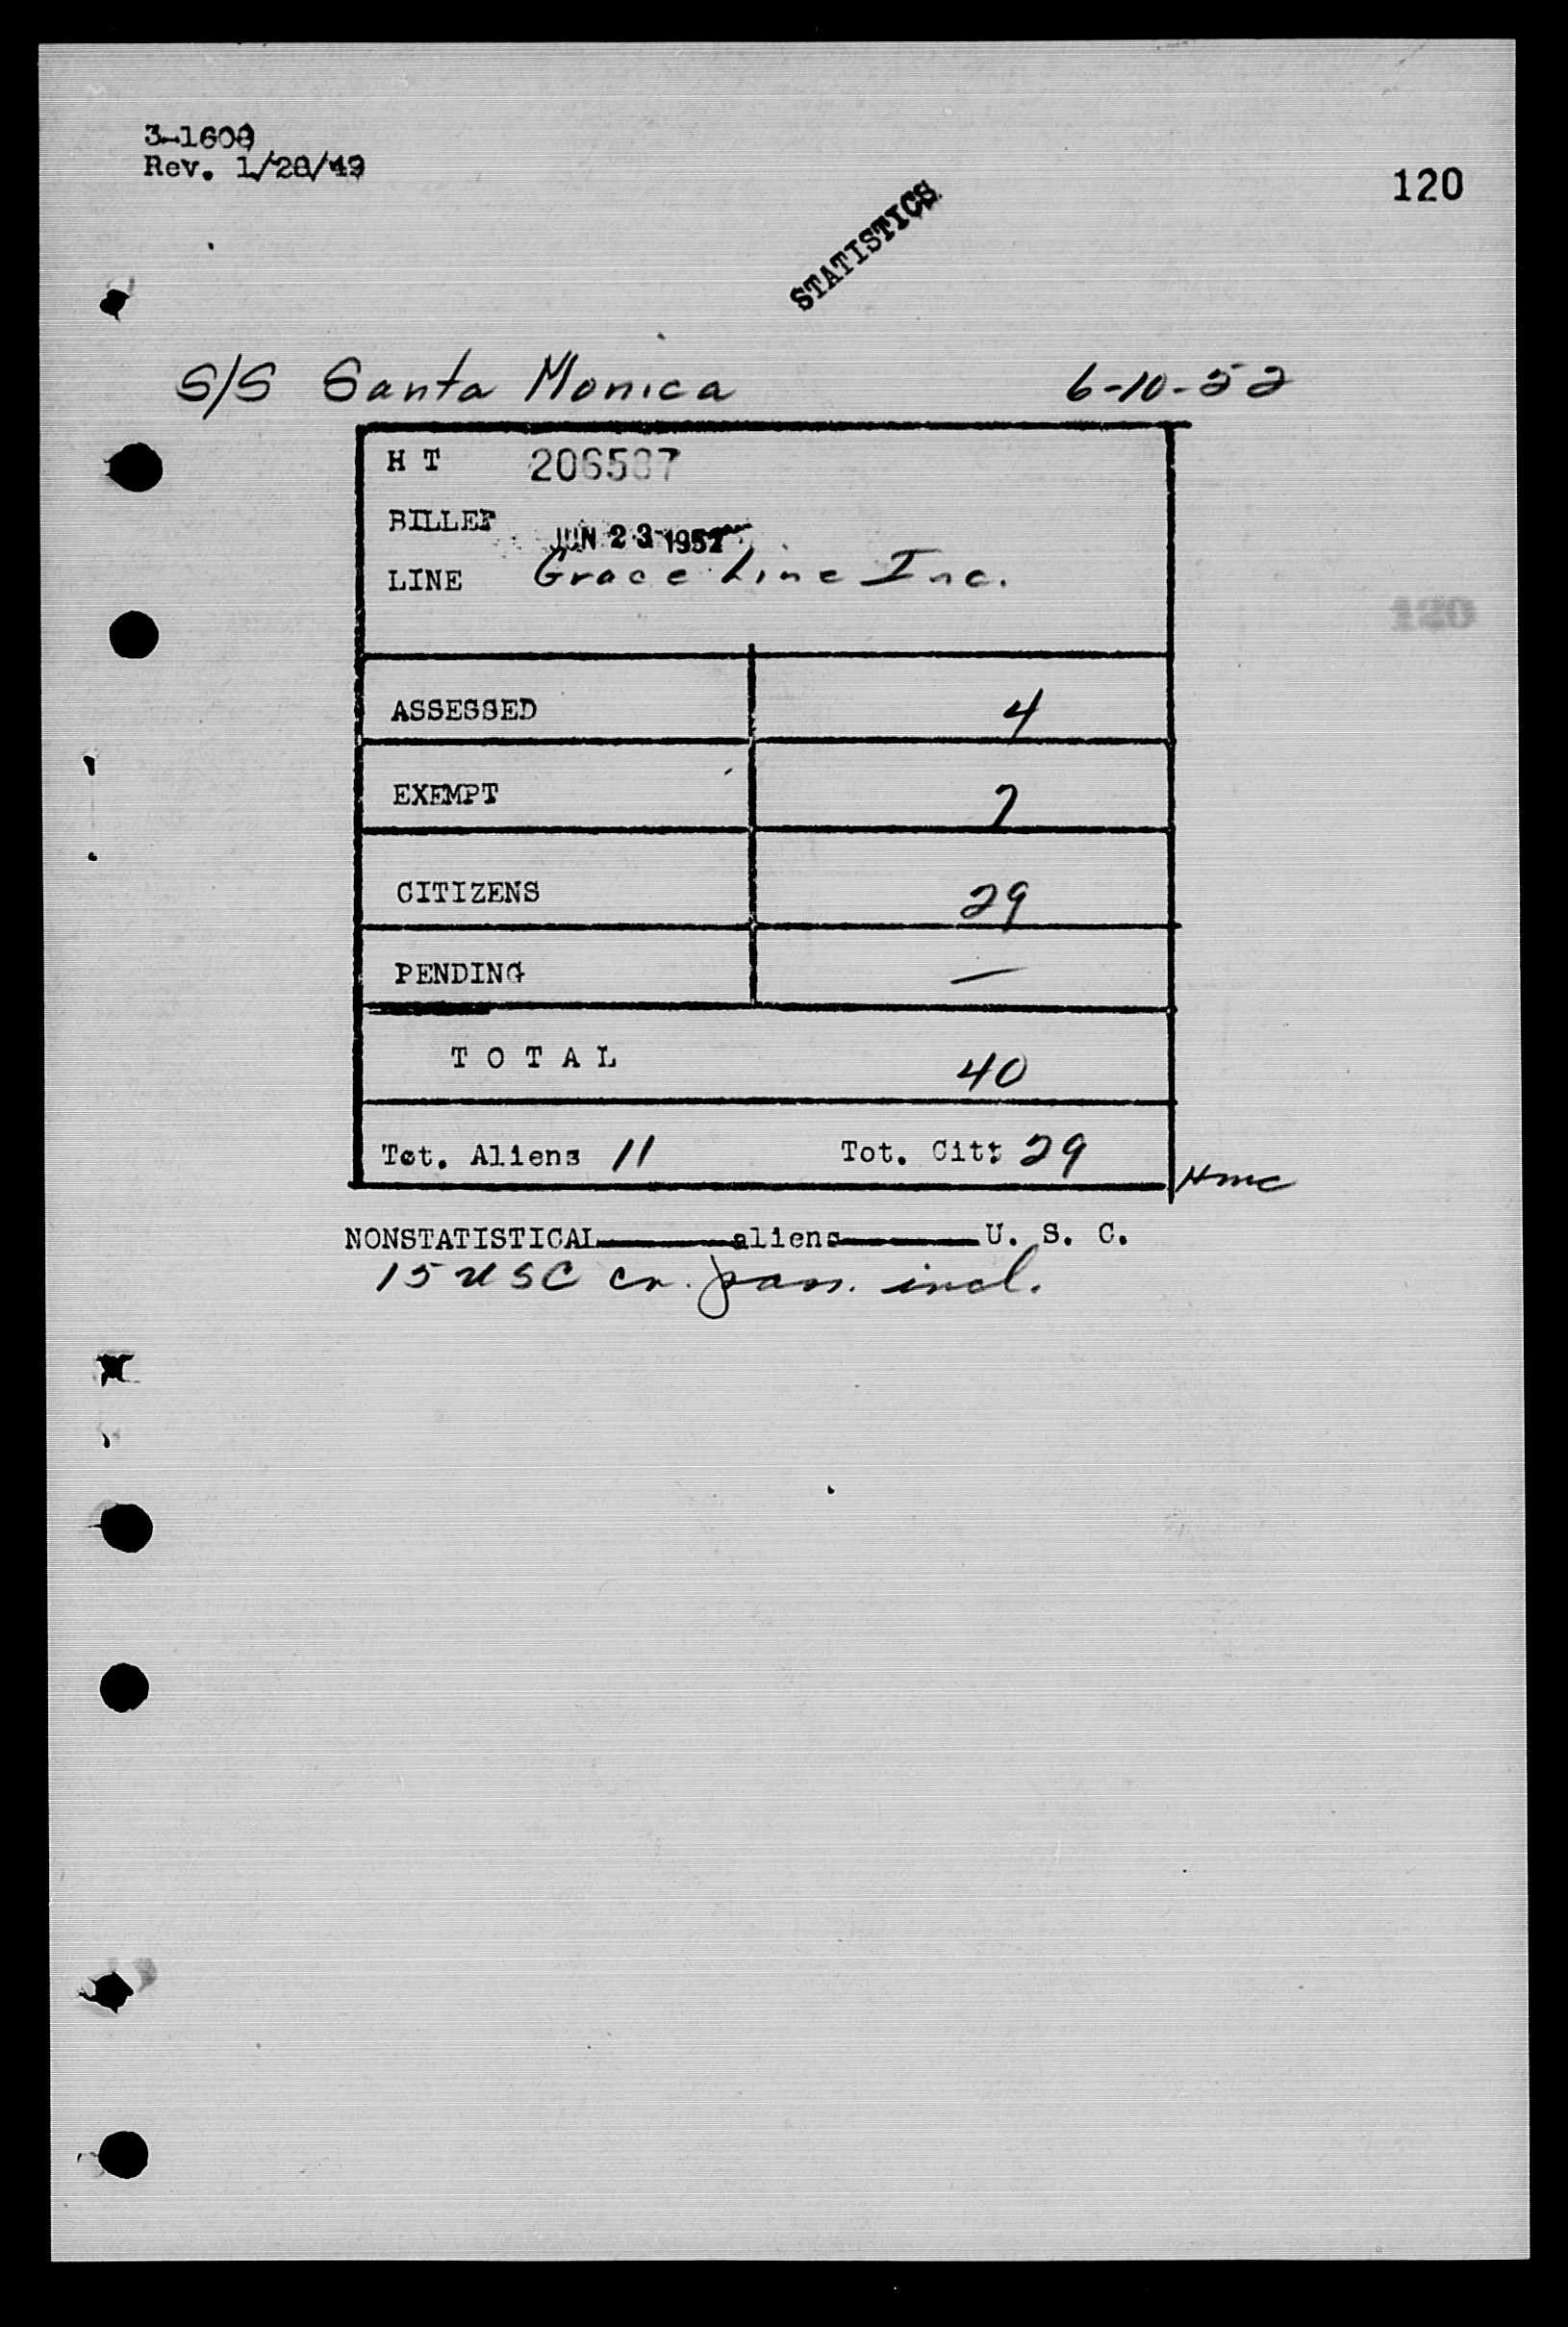 3-1608
Rev. 1/28/49
120
STATISTICS
S/S Santa Monica 6-10-52
H T 206587
BILLED JUN 23 1952
LINE Grace Line Inc.
ASSESSED 4
EXEMPT 7
CITIZENS 29
PENDING —
T O T A L 40
Tot. Aliens 11 Tot. Cit: 29
Hmc
NONSTATISTICAL aliens U. S. C.
15 USC cr. pass. incl.